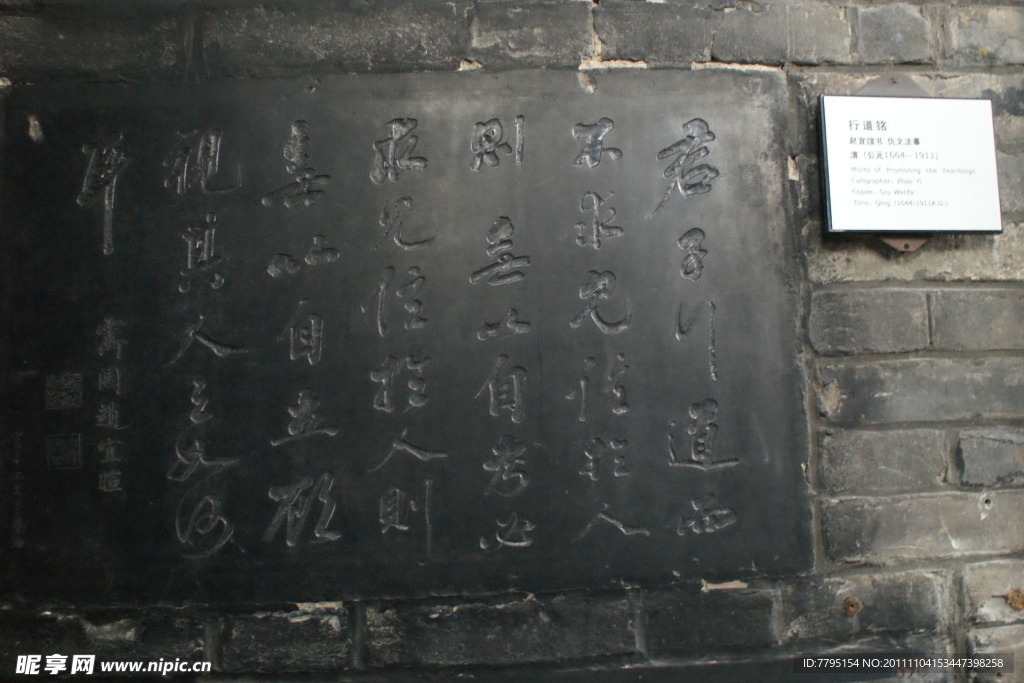 君子行道而
不求見信於人
則無以自考必
求見信於人則
無以自立顧
視其人之如何
耳
行道铭
赵宜喧书 仇文法摹
清（公元1664—1911）
Motto of Promoting the Teachings
Caligrapher: Zhao Yi
Copier: Qiu Wenfa
Time: Qing (1644-1911A.D.)
昵享网 www.nipic.cn
ID:7795154 NO:20111104153447398258